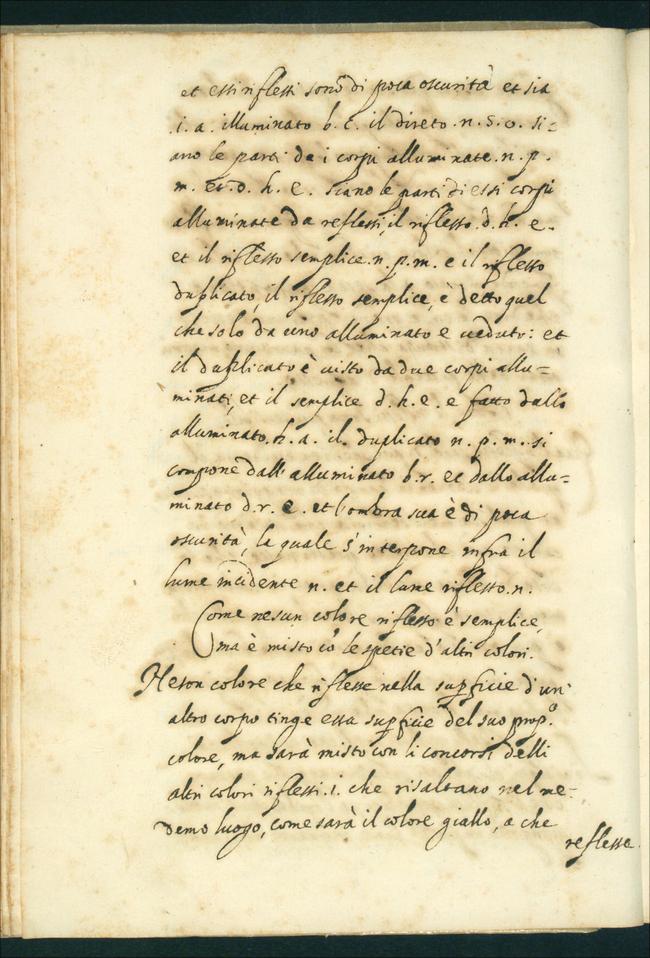 et essi riflessi sono di poca oscurità et sia
i. a. illuminato b. c. il direto. n. s. o. si=
ano le parti de i corpi alluminate. n. p.
m. et. d. h. e. siano le parti di essi corpi
alluminate da reflessi, il riflesso. d. h. e.
et il riflesso semplice. n. p. m. e il riflesso
duplicato, il riflesso semplice, è detto quel
che solo da uno alluminato e ueduto: et
il duplicato è uisto da due corpi allu=
minati, et il semplice d. h. e. e fatto dallo
alluminato. h. a. il duplicato n. p. m. si
compone dall' alluminato b. r. et dallo allu=
minato d. r. e. et l'ombra sua è di poca
oscurità, la quale s'interpone infra il
lume incidente n. et il lume riflesso. n.
Come nesun colore riflesso è semplice,
ma è misto cō le spetie d'altri colori.
Neson colore che riflesse nella superficie d'un'
altro corpo tinge essa superficie del suo prop.º
colore, ma sarà misto con li concorsi delli
altri colori riflessi. i. che risaltano nel me=
demo luogo, come sarà il colore giallo, a che
reflesse